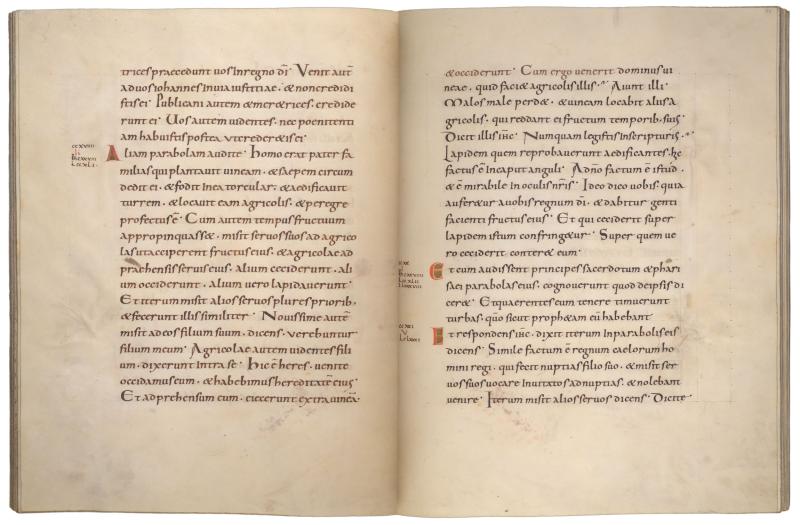 trices praecedunt uos in regno dī · Venit aut̄
ad uos iohannes in uia iustitiae · & non credidi
stis ei · Publicani autem & mer&rices · credide
runt ei · Uos autem uidentes · nec poenitenti
am habuistis postea ut creder&is ei
Aliam parabolam audite · Homo erat pater fa
milias qui plantauit uineam · & saepem circum
dedit ei · & fodit in ea torcular · & aedificauit
turrem · & locauit eam agricolis · & peregre
profectus ē · Cum autem tempus fructuum
appropinquass& · misit seruos suos ad agrico
las ut acciperent fructus eius · & agricolae ad
praehensis seruis eius · alium ceciderunt · ali
um occiderunt · alium uero lapidauerunt ·
Et iterum misit alios seruos plures priorib·
& fecerunt illis similiter · Nouissime autem
misit ad eos filium suum · dicens · uerebuntur
filium meum · Agricolae autem uidentes fili
um · dixerunt intra se · Hic ē heres · uenite
occidamus eum · & habebimus hereditatē eius ·
Et adprehensum eum · eiecerunt extra uineā ·
& occiderunt · Cum ergo uenerit dominus ui
neae · quid faci& agricolis illis · Aiunt illi ·
Malos male perd& · & uineam locabit aliis a
gricolis · qui reddant ei fructum temporib· suis
Dicit illis ihc̄ · Numquam legistis in scripturis ·
Lapidem quem reprobauerunt aedificantes · hic
factus ē in caput anguli · A dn̄o factum ē istud ·
& ē mirabile in oculis nr̄is · Ideo dico uobis · quia
aufer&ur a uobis regnum dī · & dabitur genti
facienti fructus eius · Et qui ceciderit super
lapidem istum confring&ur · Super quem ue
ro ceciderit conter& eum ·
Et cum audissent principes sacerdotum & phari
saei parabolas eius · cognouerunt quod de ipsis di
cer& · Et quaerentes eum tenere timuerunt
turbas · quō sicut proph&am eū habebant ·
Et respondens ihc̄ · dixit iterum in parabolis eis
dicens · Simile factum ē regnum caelorum ho
mini regi · qui fecit nuptias filio suo · & misit ser
uos suos uocare inuitatos ad nuptias · & nolebant
uenire · Iterum misit alios seruos dicens · Dicite